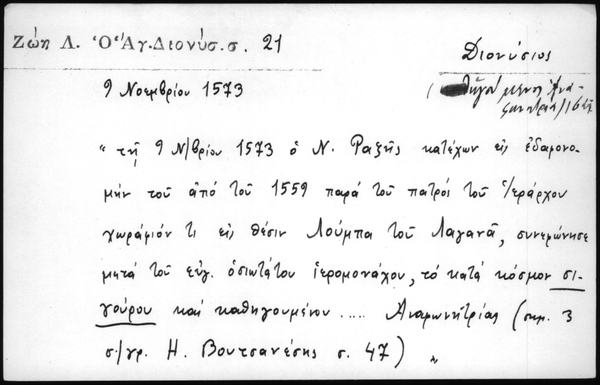 Ζώη Λ. Ὁ Ἅγ. Διονύσ. σ. 21
Διονύσιος
9 Νοεμβρίου 1573
" τῇ 9 Ν/βρίου 1573 ὁ Ν. Ραξῆς κατέχων εἰς ἐδαφονο-
μήν τοῦ ἀπό τοῦ 1559 παρά τοῦ πατρός τοῦ Ἱ/εράρχου
χωράφιόν τι εἰς θέσιν Λούμπα τοῦ Λαγανᾶ, συνεφώνησε
μετά τοῦ εὐγ. ὁσιωτάτου ἱερομονάχου, τό κατά κόσμον Σι-
γούρου καί καθηγουμένου .... Ἀναφωνητρίας (σημ. 3
σ/γρ. Η. Βουτσανέσης σ. 47) "